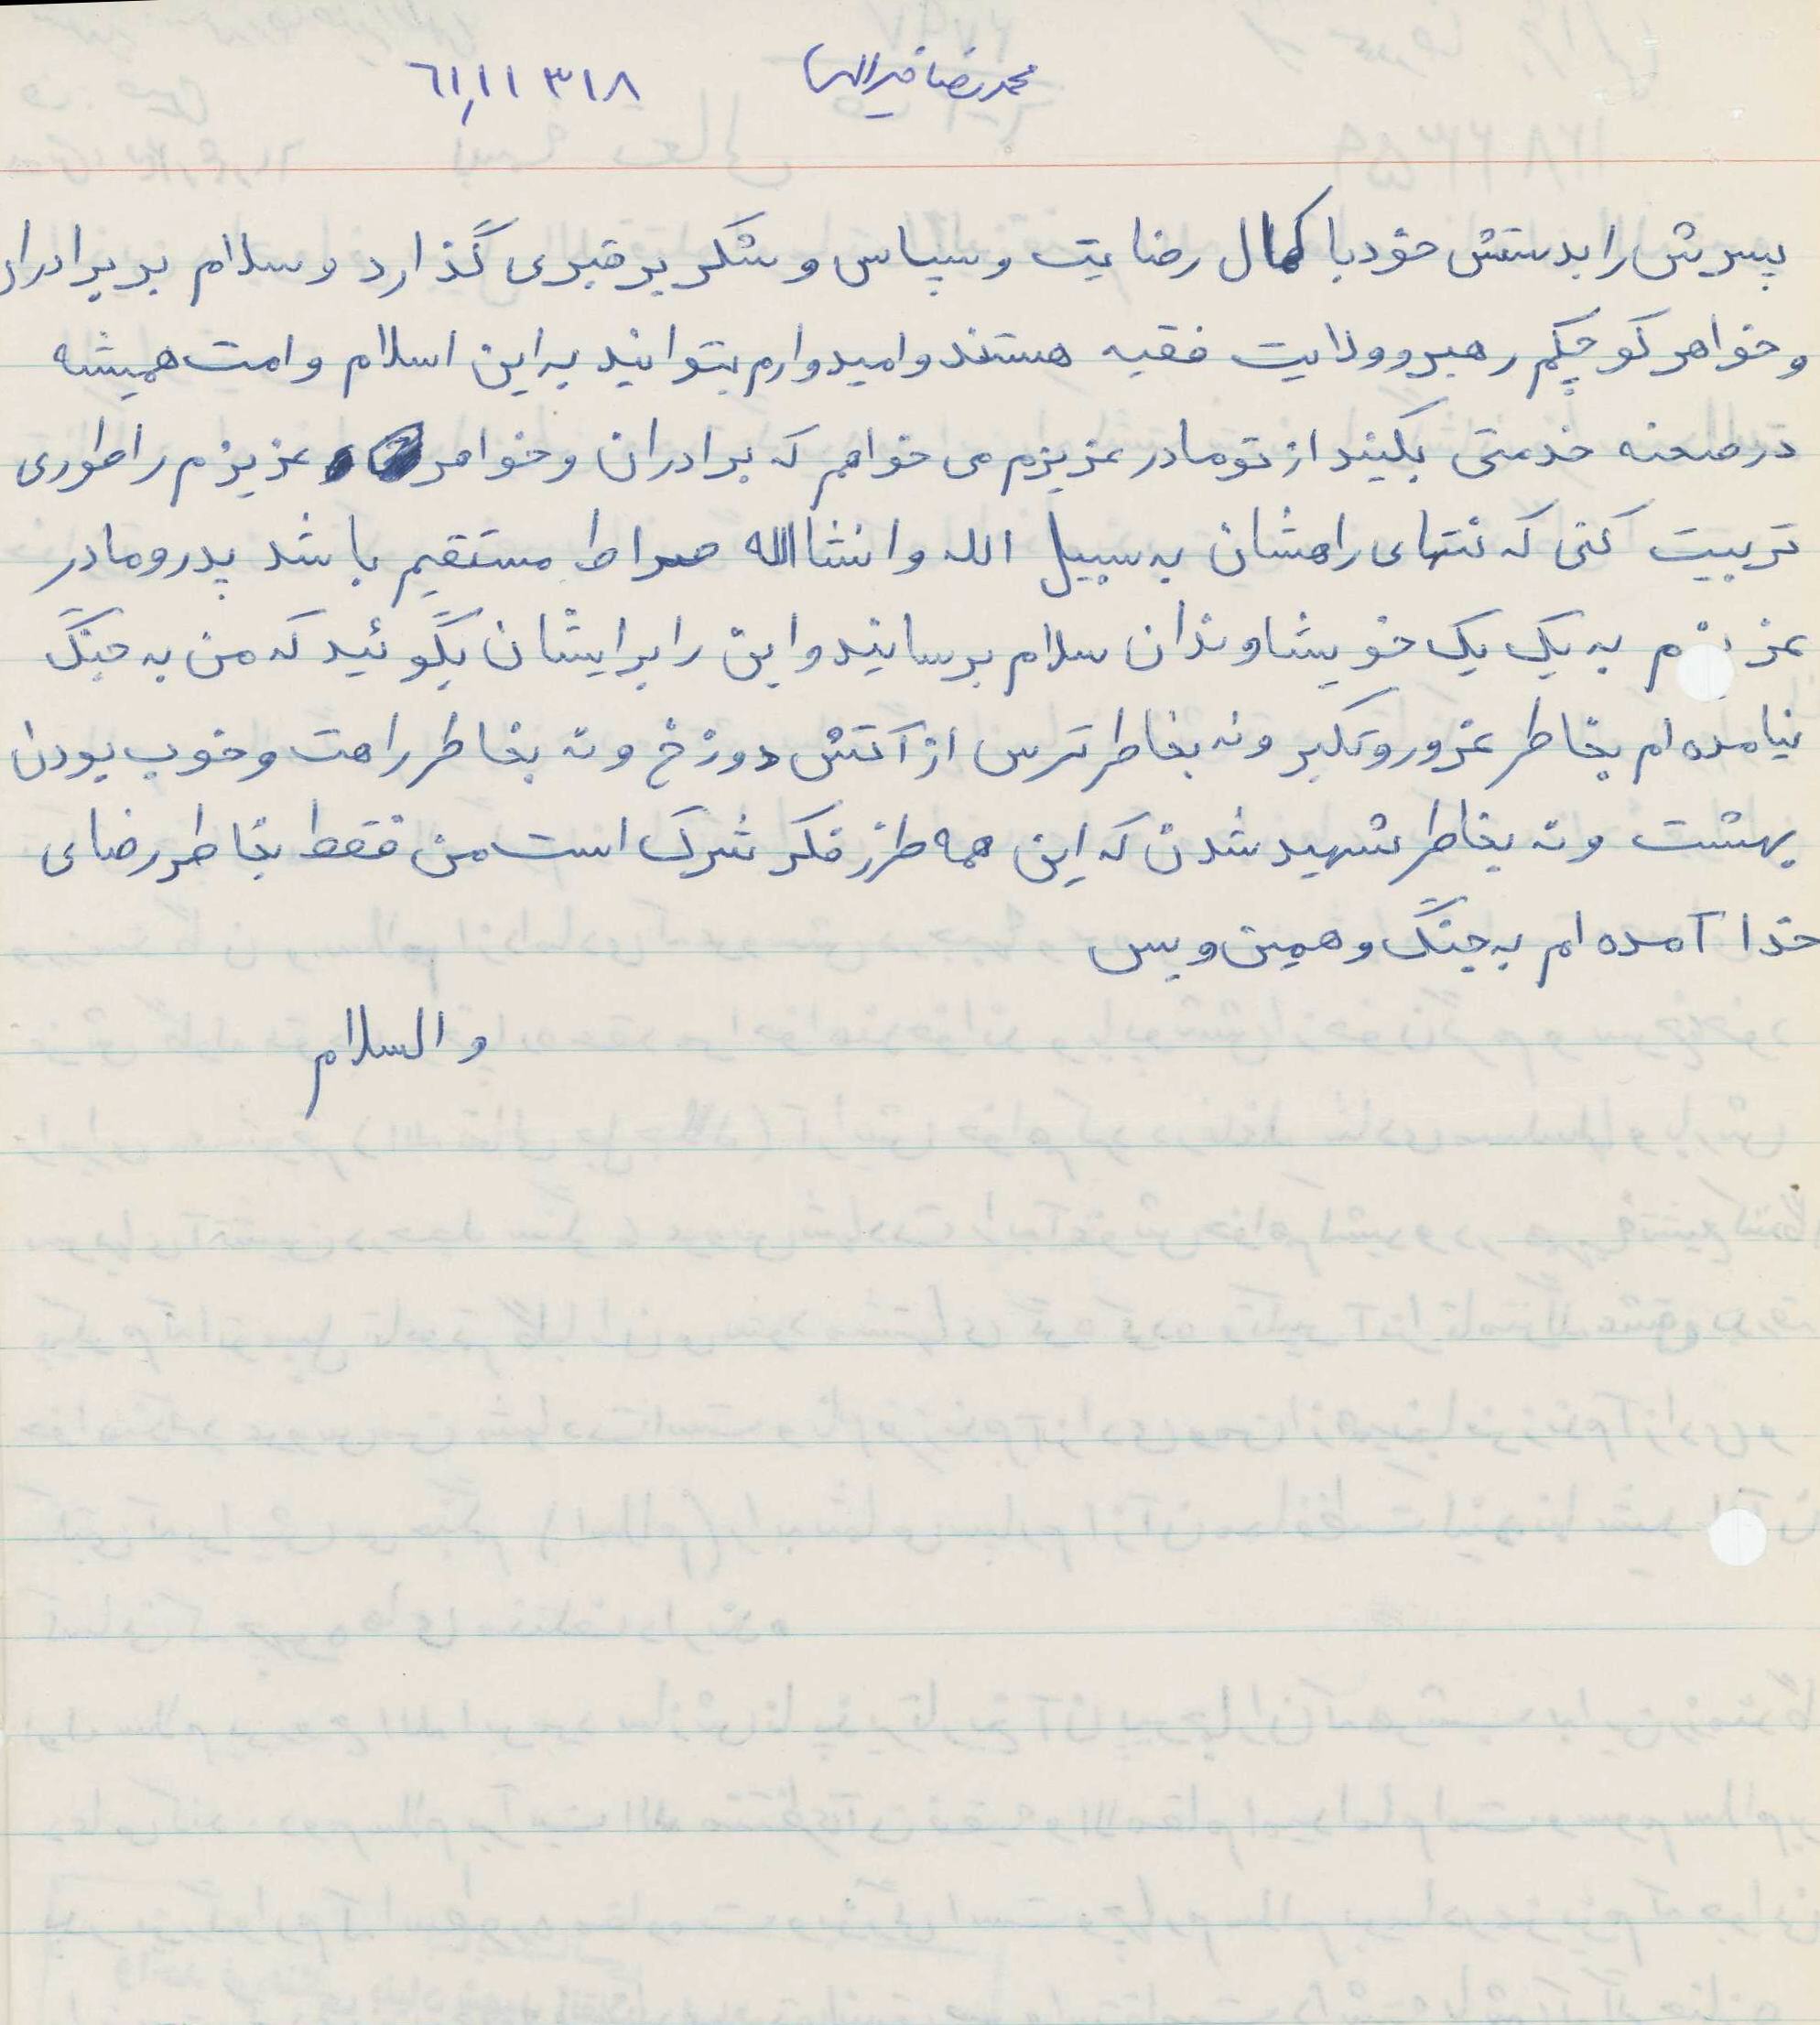 محمدرضا خیرالهی ٦١٫١١ ٣١٨
پسرش را بدستش خود با کمال رضایت و سپاس و شکر بر قبری گذارد و سلام بر برادران
و خواهر کوچکم رهبر و ولایت فقیه هستند و امیدوارم بتوانید به این اسلام و امت همیشه
در صحنه خدمتی بکنید از تو مادر عزیزم می خواهم که برادران و خواهر عزیزم را طوری
تربیت کنی که نتهای راهشان به سبیل الله وانشاالله صراط مستقیم باشد پدر و مادر
عزیزم به یک یک خویشاوندان سلام برسانید و این را برایشان بگوئید که من به جنگ
نیامده ام بخاطر غرور و تکبر و نه بخاطر ترس از آتش دوزخ و نه بخاطر راحت و خوب بودن
بهشت و نه بخاطر شهید شدن که این همه طرز فکر شرک است من فقط بخاطر رضای
خدا آمده ام به جنگ و همین و بس
والسلام